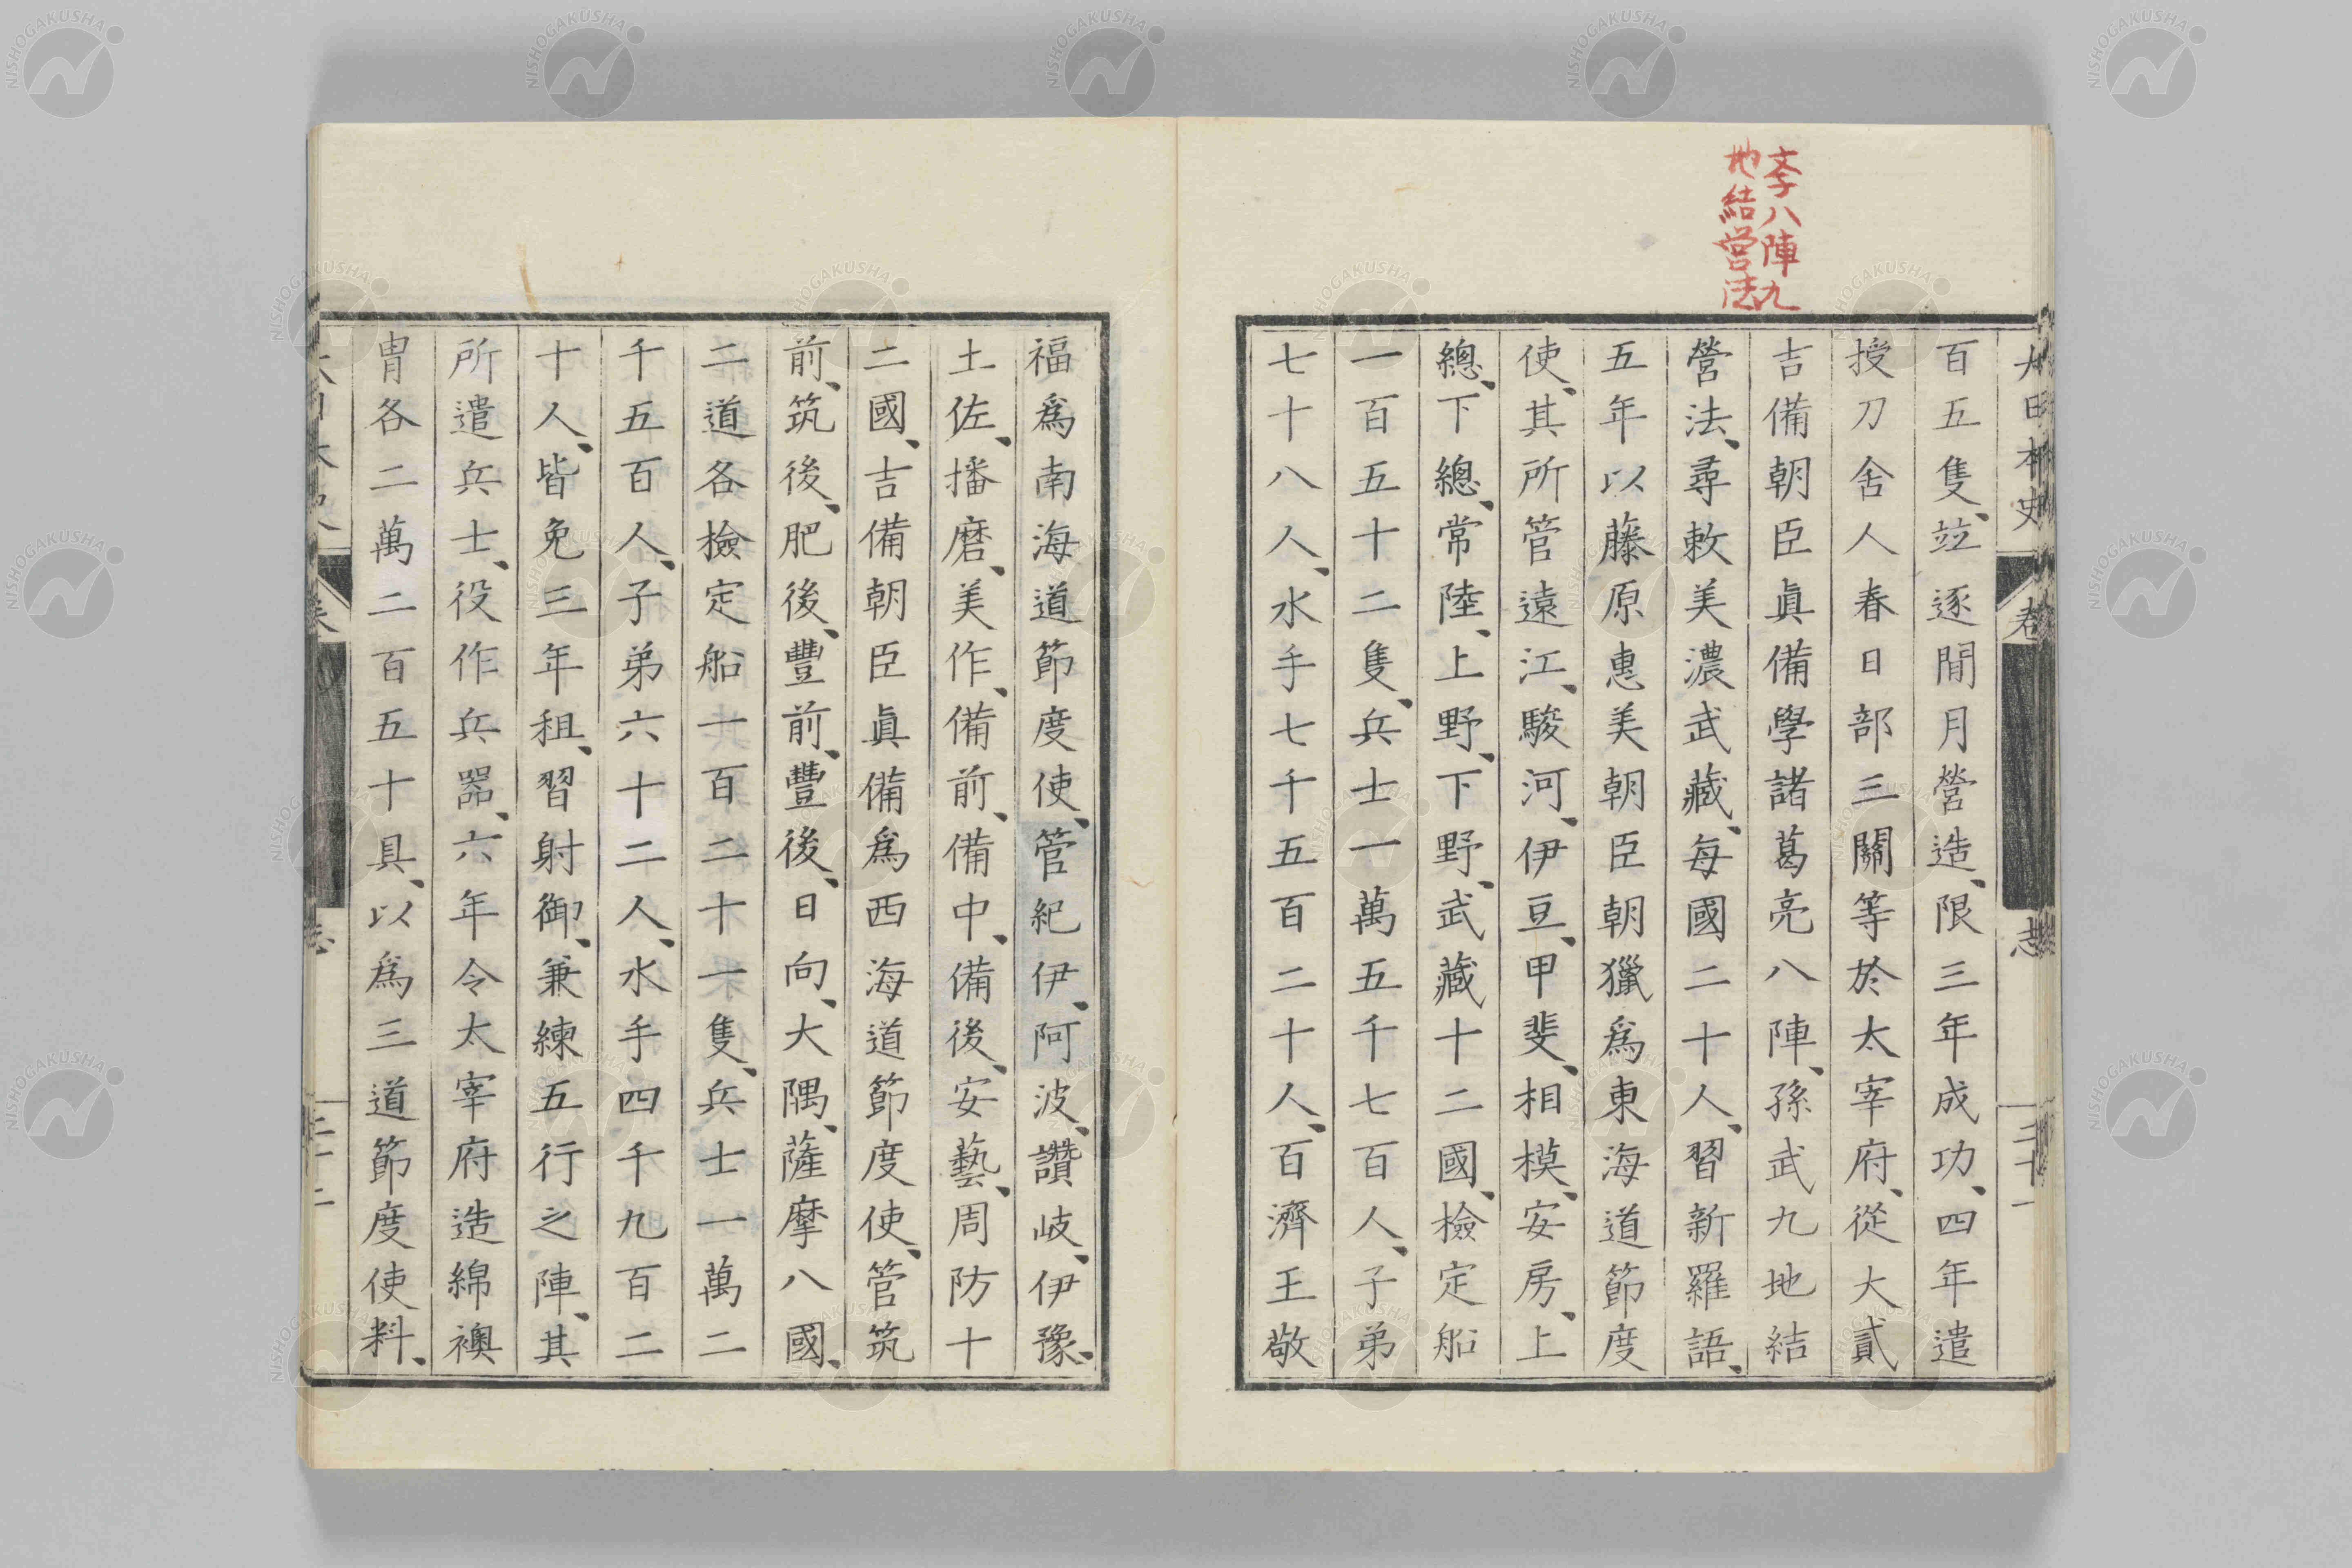 孝八陣九
地結営法
大日本史 卷 志 三十一
百五隻、竝逐閒月營造、限三年成功、四年遣
授刀舍人春日部三關等於太宰府、從大貳
吉備朝臣眞備學諸葛亮八陣、孫武九地結
營法、尋敕美濃武藏、每國二十人、習新羅語、
五年以藤原惠美朝臣朝獵爲東海道節度
使、其所管遠江、駿河、伊豆、甲斐、相模、安房、上
總、下總、常陸、上野、下野、武藏十二國、檢定船
一百五十二隻、兵士一萬五千七百人、子弟
七十八人、水手七千五百二十人、百濟王敬
福爲南海道節度使、管紀伊、阿波、讚岐、伊豫、
土佐、播磨、美作、備前、備中、備後、安藝、周防十
二國、吉備朝臣眞備爲西海道節度使、管筑
前、筑後、肥後、豐前、豐後、日向、大隅、薩摩八國、
二道各檢定船一百二十一隻、兵士一萬二
千五百人、子弟六十二人、水手四千九百二
十人、皆免三年租、習射御、兼練五行之陣、其
所遣兵士、役作兵器、六年令太宰府造綿襖
冑各二萬二百五十具、以爲三道節度使料、
大日本史 卷 志 三十二
NISHOGAKUSHA